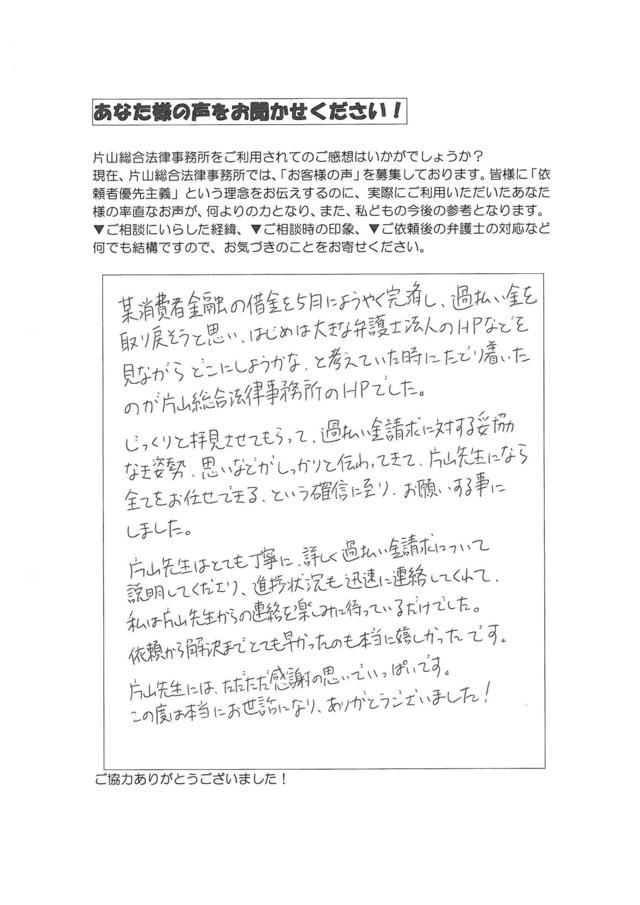 あなた様の声をお聞かせください！
片山総合法律事務所をご利用されてのご感想はいかがでしょうか？
現在、片山総合法律事務所では、「お客様の声」を募集しております。皆様に「依
頼者優先主義」という理念をお伝えするのに、実際にご利用いただいたあなた
様の率直なお声が、何よりの力となり、また、私どもの今後の参考となります。
▼ご相談にいらした経緯、▼ご相談時の印象、▼ご依頼後の弁護士の対応など
何でも結構ですので、お気づきのことをお寄せください。
某消費者金融の借金を5月にようやく完済し、過払い金を
取り戻そうと思い、はじめは大きな弁護士法人のHPなどを
見ながらどこにしようかな、と考えていた時にたどり着いた
のが片山総合法律事務所のHPでした。
じっくりと拝見させてもらって、過払い金請求に対する妥協
なき姿勢、思いなどがしっかりと伝わってきて、片山先生になら
全てをお任せできる、という確信に至り、お願いする事に
しました。
片山先生はとても丁寧に、詳しく過払い金請求について
説明してくださり、進捗状況も迅速に連絡してくれて、
私は片山先生からの連絡を楽しみに待っているだけでした。
依頼から解決までとても早かったのも本当に嬉しかったです。
片山先生には、ただただ感謝の思いでいっぱいです。
この度は本当にお世話になり、ありがとうございました！
ご協力ありがとうございました！